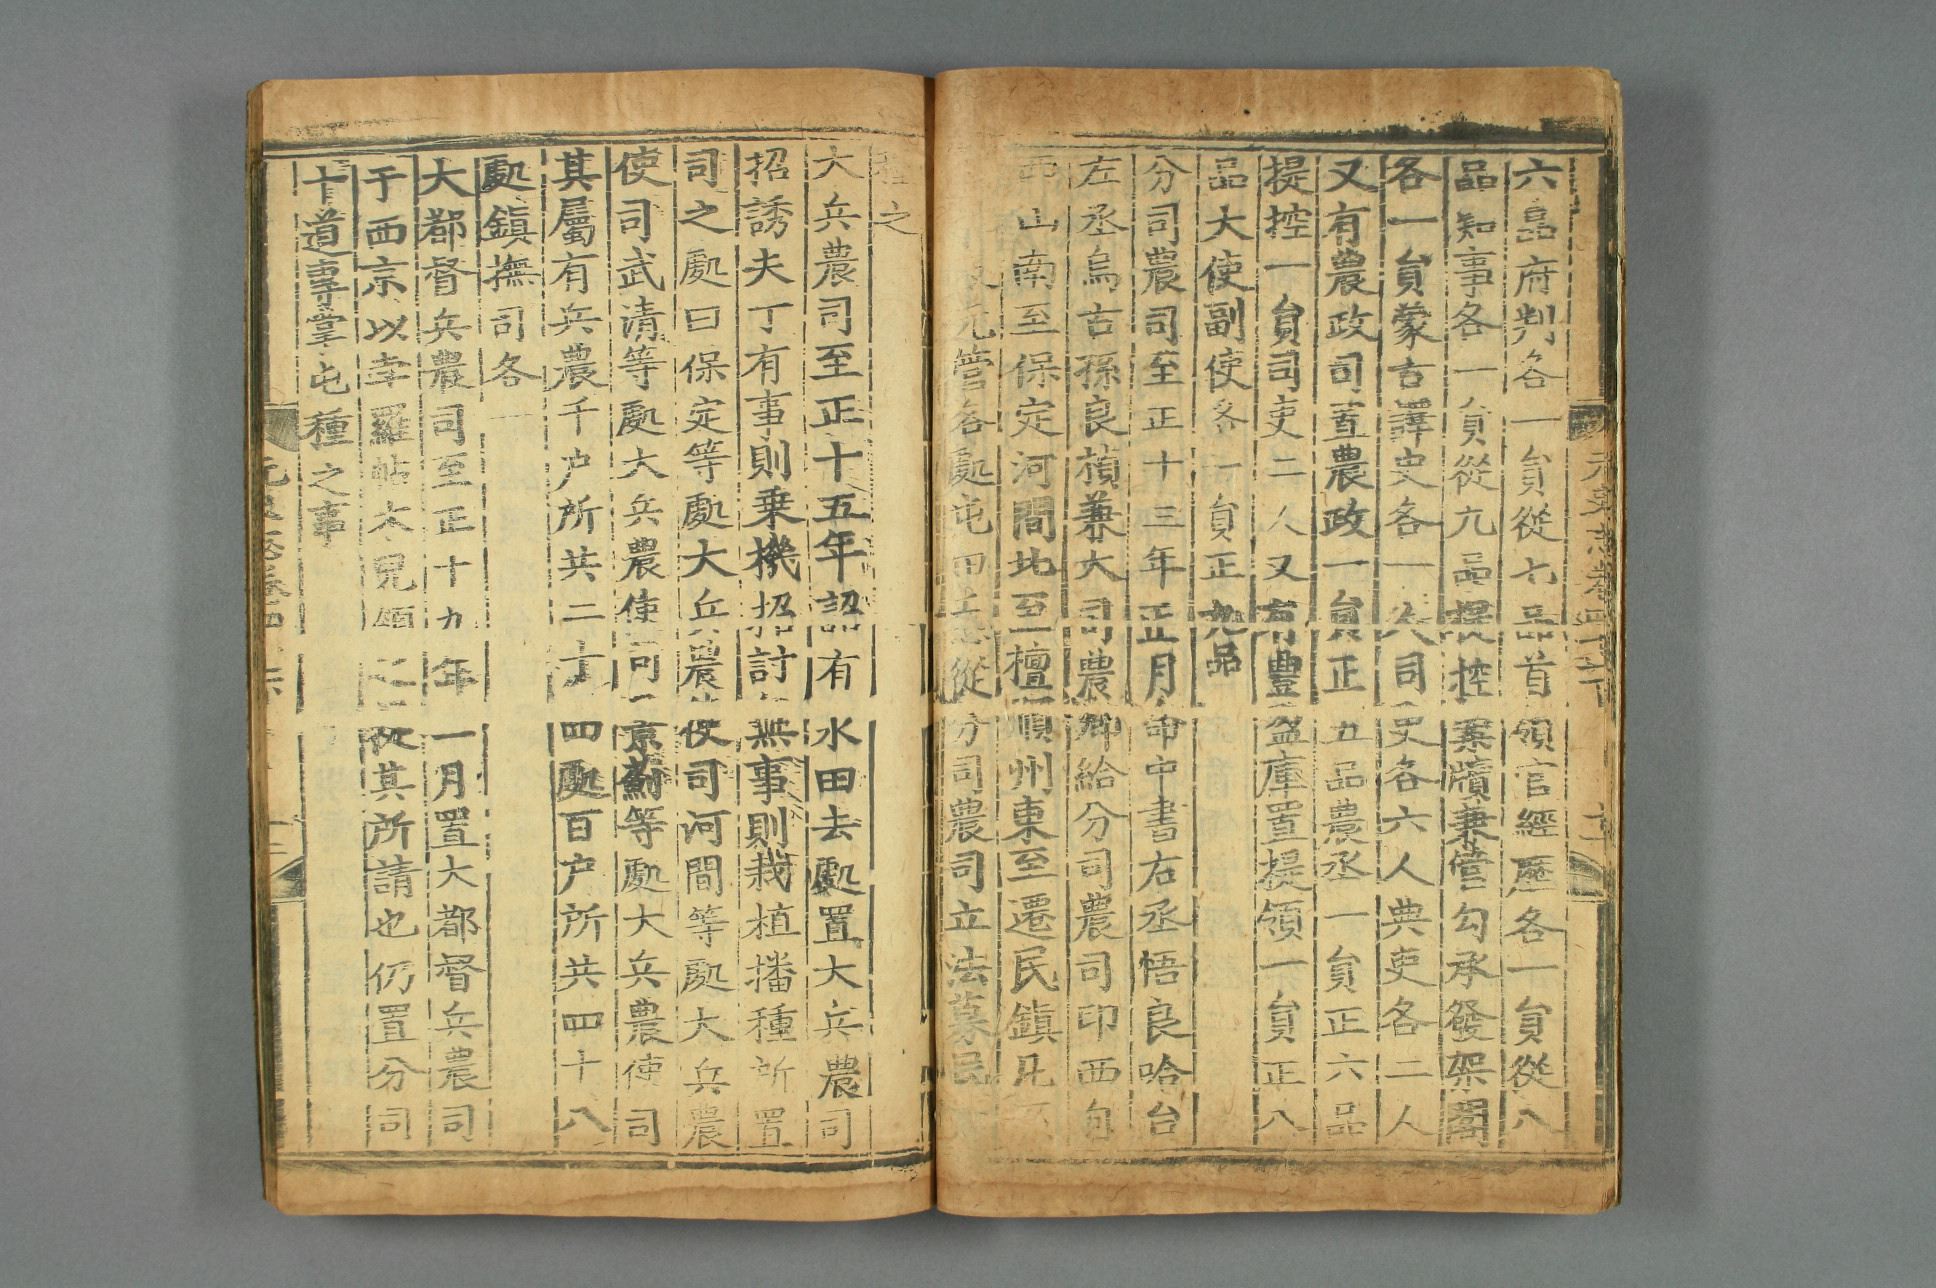 六品府判各一員從七品首領官經歷各一員從八
品知事各一員從九品提控案牘兼管勾承發架閣
各一員蒙古譯史各一人司吏各六人典吏各二人
又有農政司置農政一員正五品農丞一員正六品
提控一員司吏二人又有豐盈庫置提領一員正八
品大使副使各一員正九品
分司農司至正十三年正月命中書右丞悟良哈台
左丞烏古孫良楨兼大司農卿給分司農司印西自
西山南至保定河間北至檀順州東至遷民鎮凡
元管各處屯田 從分司農司立法募民
種之
大兵農司至正十五年詔有水田去處置大兵農司
招誘夫丁有事則乗機招討無事則栽植播種所置
司之處曰保定等處大兵農使司河間等處大兵農
使司武清等處大兵農使司京薊等處大兵農使司
其屬有兵農千户所共二十四處百户所共四十八
處鎮撫司各一
大都督兵農司至正十九年 一月置大都督兵農司
于西京以孛羅帖木兒領之從其所請也仍置分司
十道專掌屯種之事